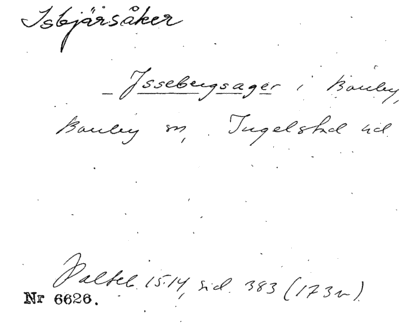 Isbjärsåker
_ Jssebergsager i Bonby,
Bonby sn, Ingelstad hd
Palteb. 1514, sid. 383 (173v)
Nr 6626.